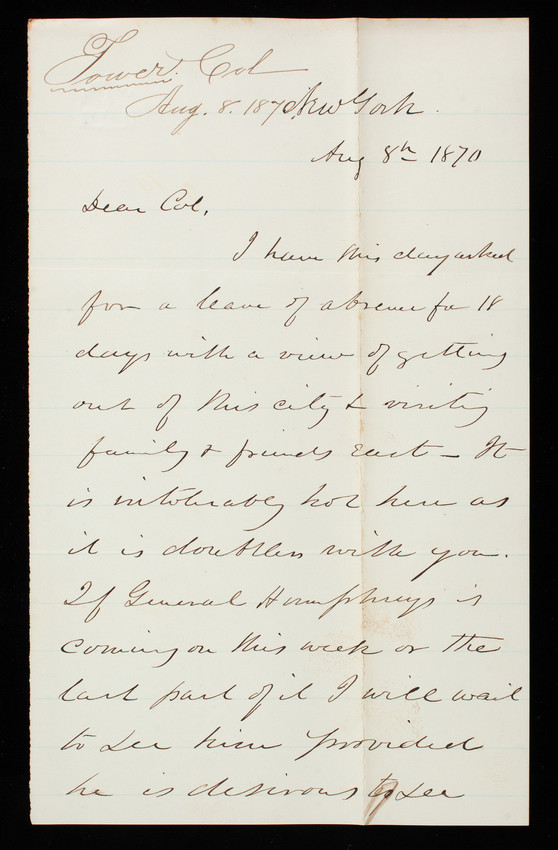 Tower. Col
Aug. 8. 1870. New York.
Aug 8th 1870
Dear Col,
I have this day asked
for a leave of absence for 18
days with a view of getting
out of this city & visiting
family & friends East – It
is intolerably hot here as
it is doubtless with you.
If General Humphreys is
coming on this week or the
last part of it I will wait
to see him provided
he is desirous to see